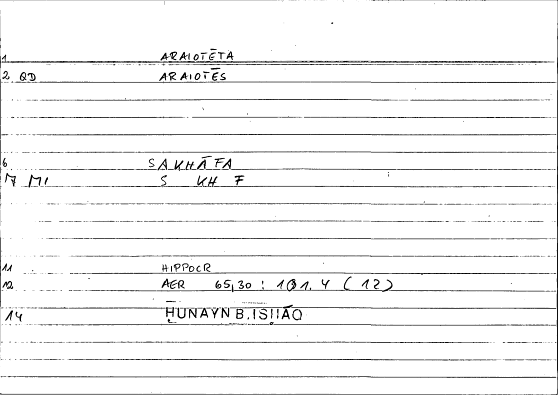 1 ARAIOTĒTA
2 QD ARAIOTĒS
6 SAKHĀFA
7 MI S KH F
11 HIPPOCR
12 AER 65,30 : 101,4 (12)
14 ḤUNAYN B.ISḤĀQ